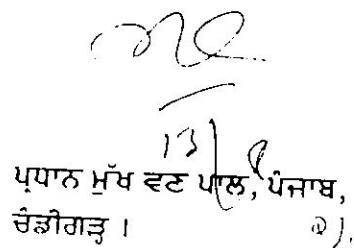 ਪ੍ਰਧਾਨ ਮੁੱਖ ਵਣ ਪਾਲ, ਪੰਜਾਬ,
ਚੰਡੀਗੜ੍ਹ ।